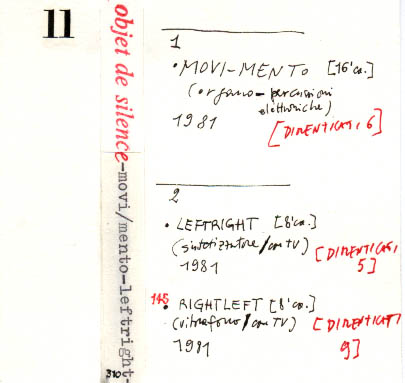 11
objet de silence-movi/mento-leftright-
310
1
• MOVI-MENTO [16'ca.]
(organo-percussioni
elettriche)
1981
[DIMENTICATI, 6]
2
• LEFTRIGHT [8'ca.]
(sintetizzatore/con TV)
1981
[DIMENTICATI,
5]
145
• RIGHTLEFT [8'ca.]
(vibrafono/con TV)
1981
[DIMENTICATI
9]